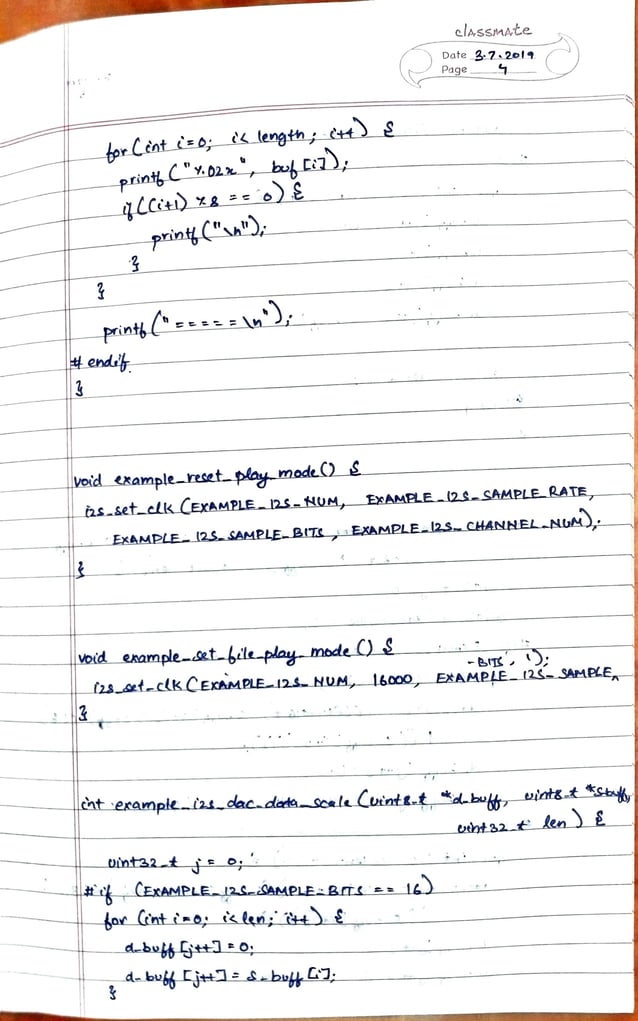 classmate
Date 3.7.2019
Page 4
for (int i=0; i< length; i++) {
printf ("%02x", buf [i]);
if ((i+1) % 8 == 0) {
printf ("\n");
}
}
printf (" = = = = = \n");
# endif
}
void example_reset_play_mode() {
i2s_set_clk (EXAMPLE_I2S_NUM, EXAMPLE_I2S_SAMPLE_RATE,
EXAMPLE_I2S_SAMPLE_BITS, EXAMPLE_I2S_CHANNEL_NUM);
}
void example_set_file_play_mode () {
i2s_set_clk (EXAMPLE_I2S_NUM, 16000, EXAMPLE_I2S_SAMPLE_BITS, 1);
}
int example_i2s_dac_data_scale (uint8_t *d_buff, uint8_t *s_buff,
uint32_t len) {
uint32_t j = 0;
# if (EXAMPLE_I2S_SAMPLE_BITS == 16)
for (int i=0; i<len; i++) {
d_buff [j++] = 0;
d_buff [j++] = s_buff [i];
}